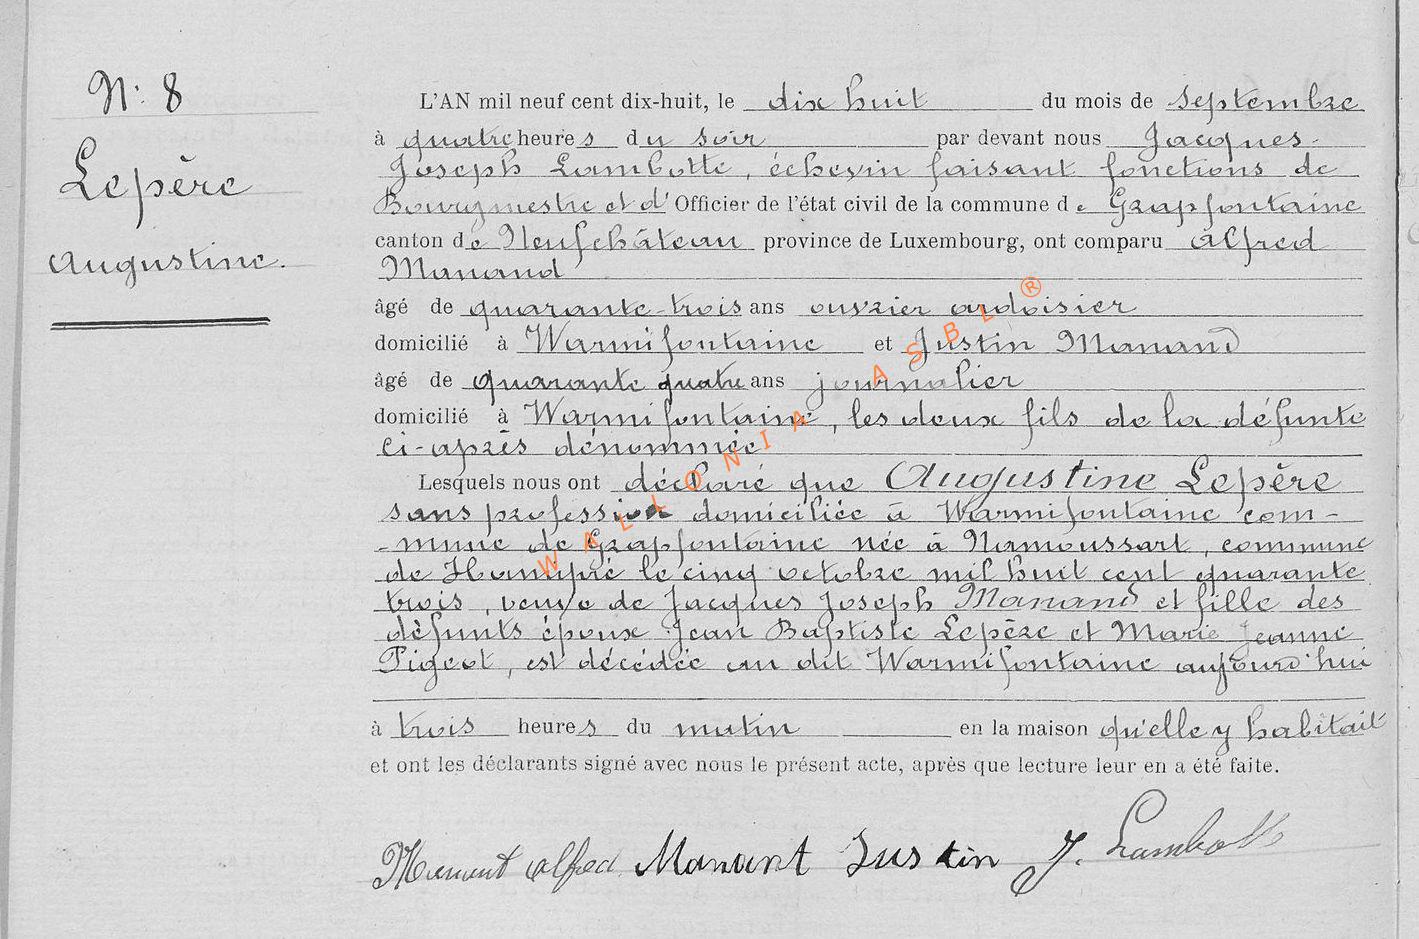 N: 8
Lepère
Augustine.
L'AN mil neuf cent dix-huit, le dix huit du mois de septembre
à quatre heures du soir par devant nous Jacques-
Joseph Lambotte, échevin faisant fonctions de
Bourgmestre et d' Officier de l'état civil de la commune de Grapfontaine
canton de Neufchâteau province de Luxembourg, ont comparu Alfred
Manand
âgé de quarante-trois ans ouvrier ardoisier
domicilié à Warmifontaine et Justin Manand
âgé de quarante quatre ans journalier
domicilié à Warmifontaine, les deux fils de la défunte
ci-après dénommée
Lesquels nous ont déclaré que Augustine Lepère
sans profession domiciliée à Warmifontaine com-
-mune de Grapfontaine née à Namoussart, commune
de Hompré le cinq octobre mil huit cent quarante
trois, veuve de Jacques Joseph Manand et fille des
défunts époux Jean Baptiste Lepère et Marie Jeanne
Pigeot, est décédée au dit Warmifontaine aujourd'hui
à trois heures du matin en la maison qu'elle y habitait
et ont les déclarants signé avec nous le présent acte, après que lecture leur en a été faite.
Manant Alfred Manant Justin J. Lambotte
WALLONIA ASBL ®